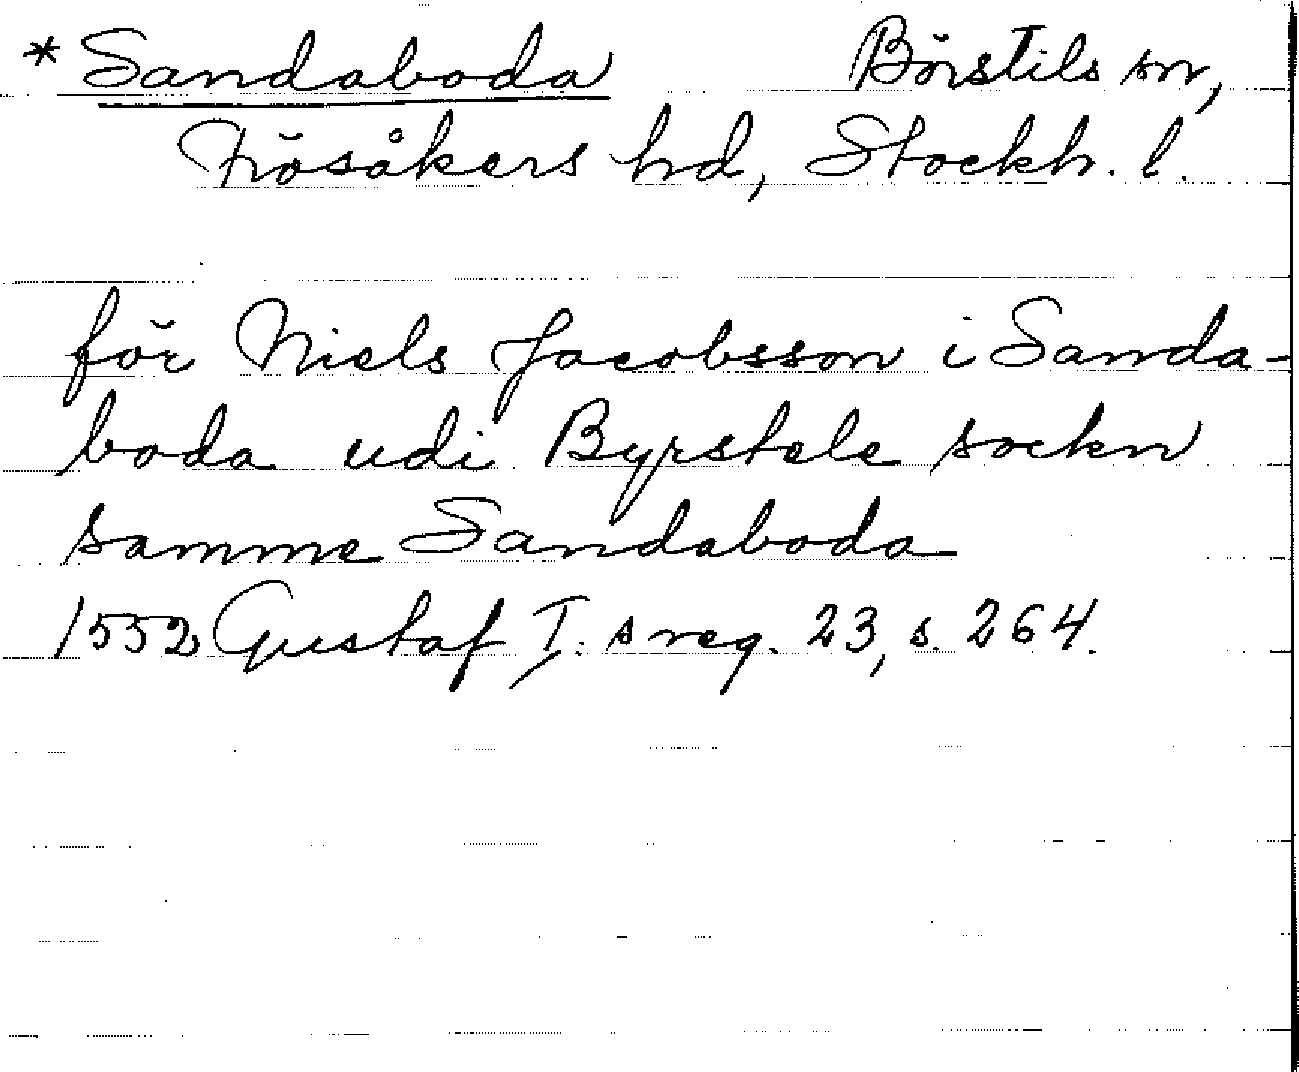 * Sandaboda Börstils sn,
Frösåkers hd, Stockh. l.
för Niels Jacobsson i Sanda-
boda udi Byrstele sockn
samme Sandaboda
1552 Gustaf I:s reg. 23, s. 264.